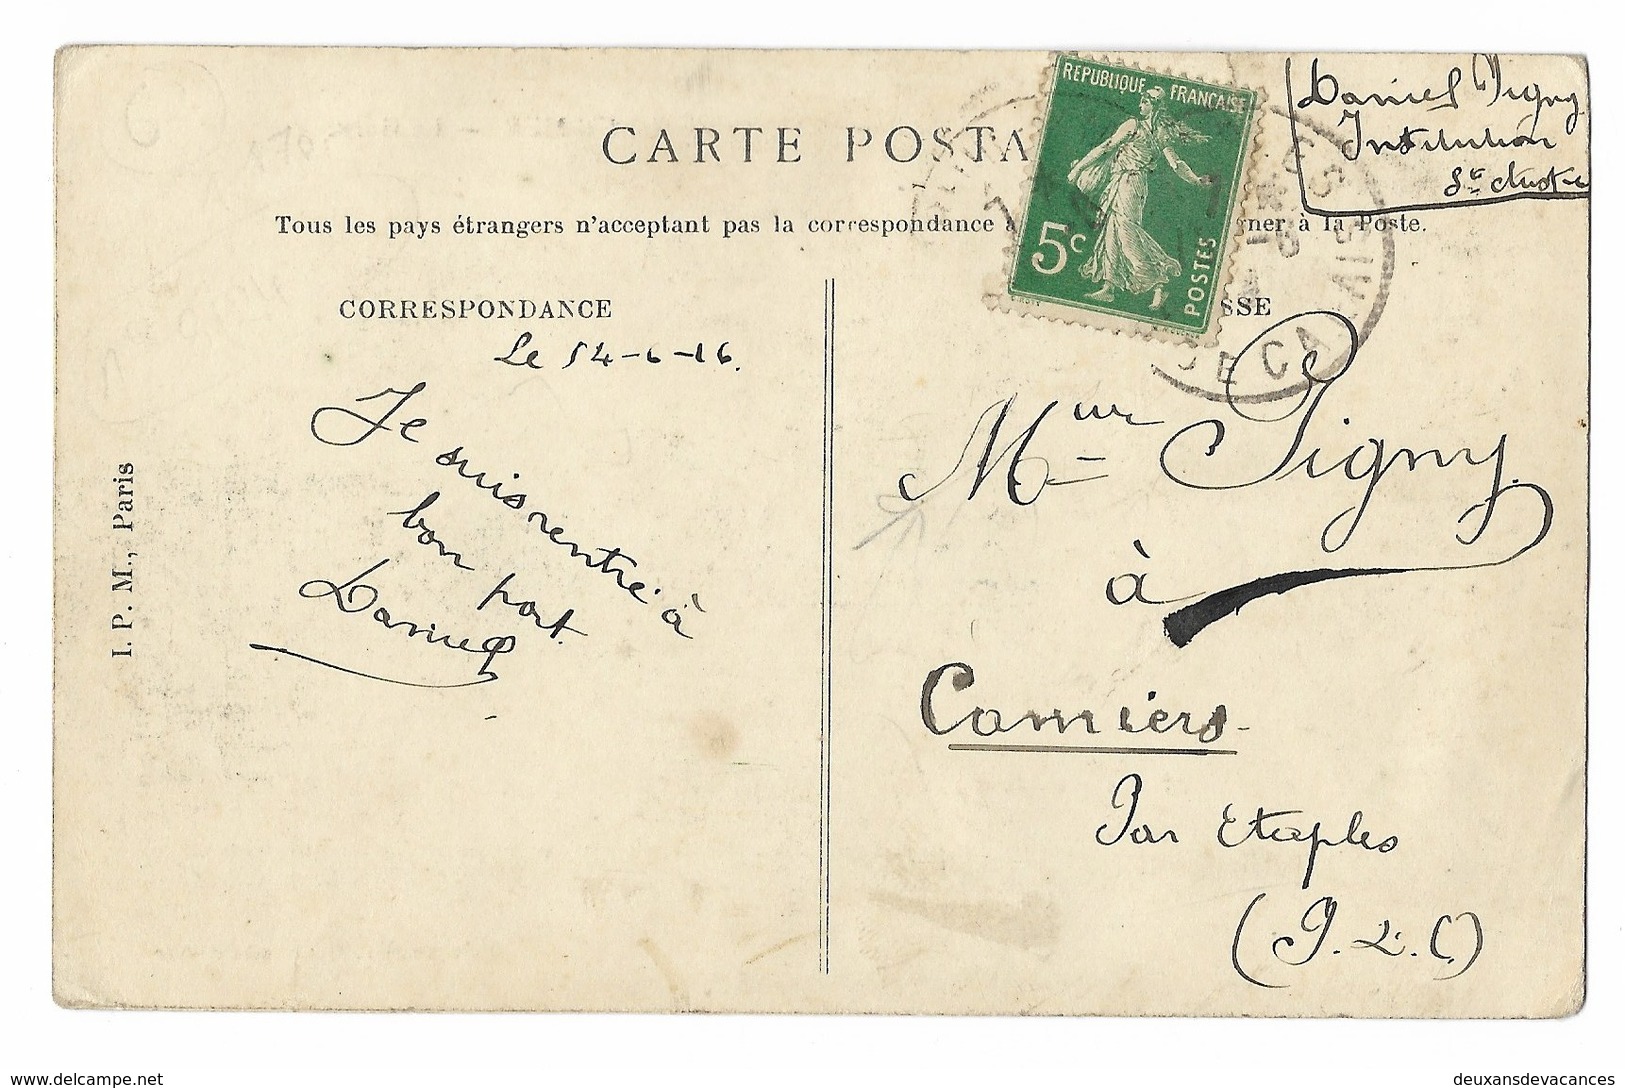 Daniel Pigny
Institution
CARTE POSTA
RÉPUBLIQUE FRANÇAISE
5c
POSTES
Tous les pays étrangers n'acceptant pas la correspondance à
gner à la Poste.
CORRESPONDANCE
SSE
DE CALAIS
Le 14-6-16.
Je suis rentré à
bon port.
Daniel
I. P. M., Paris
Mme Pigny
à
Camiers
Par Etaples
(P.d.C.)
delcampe.net
deuxansdevacances